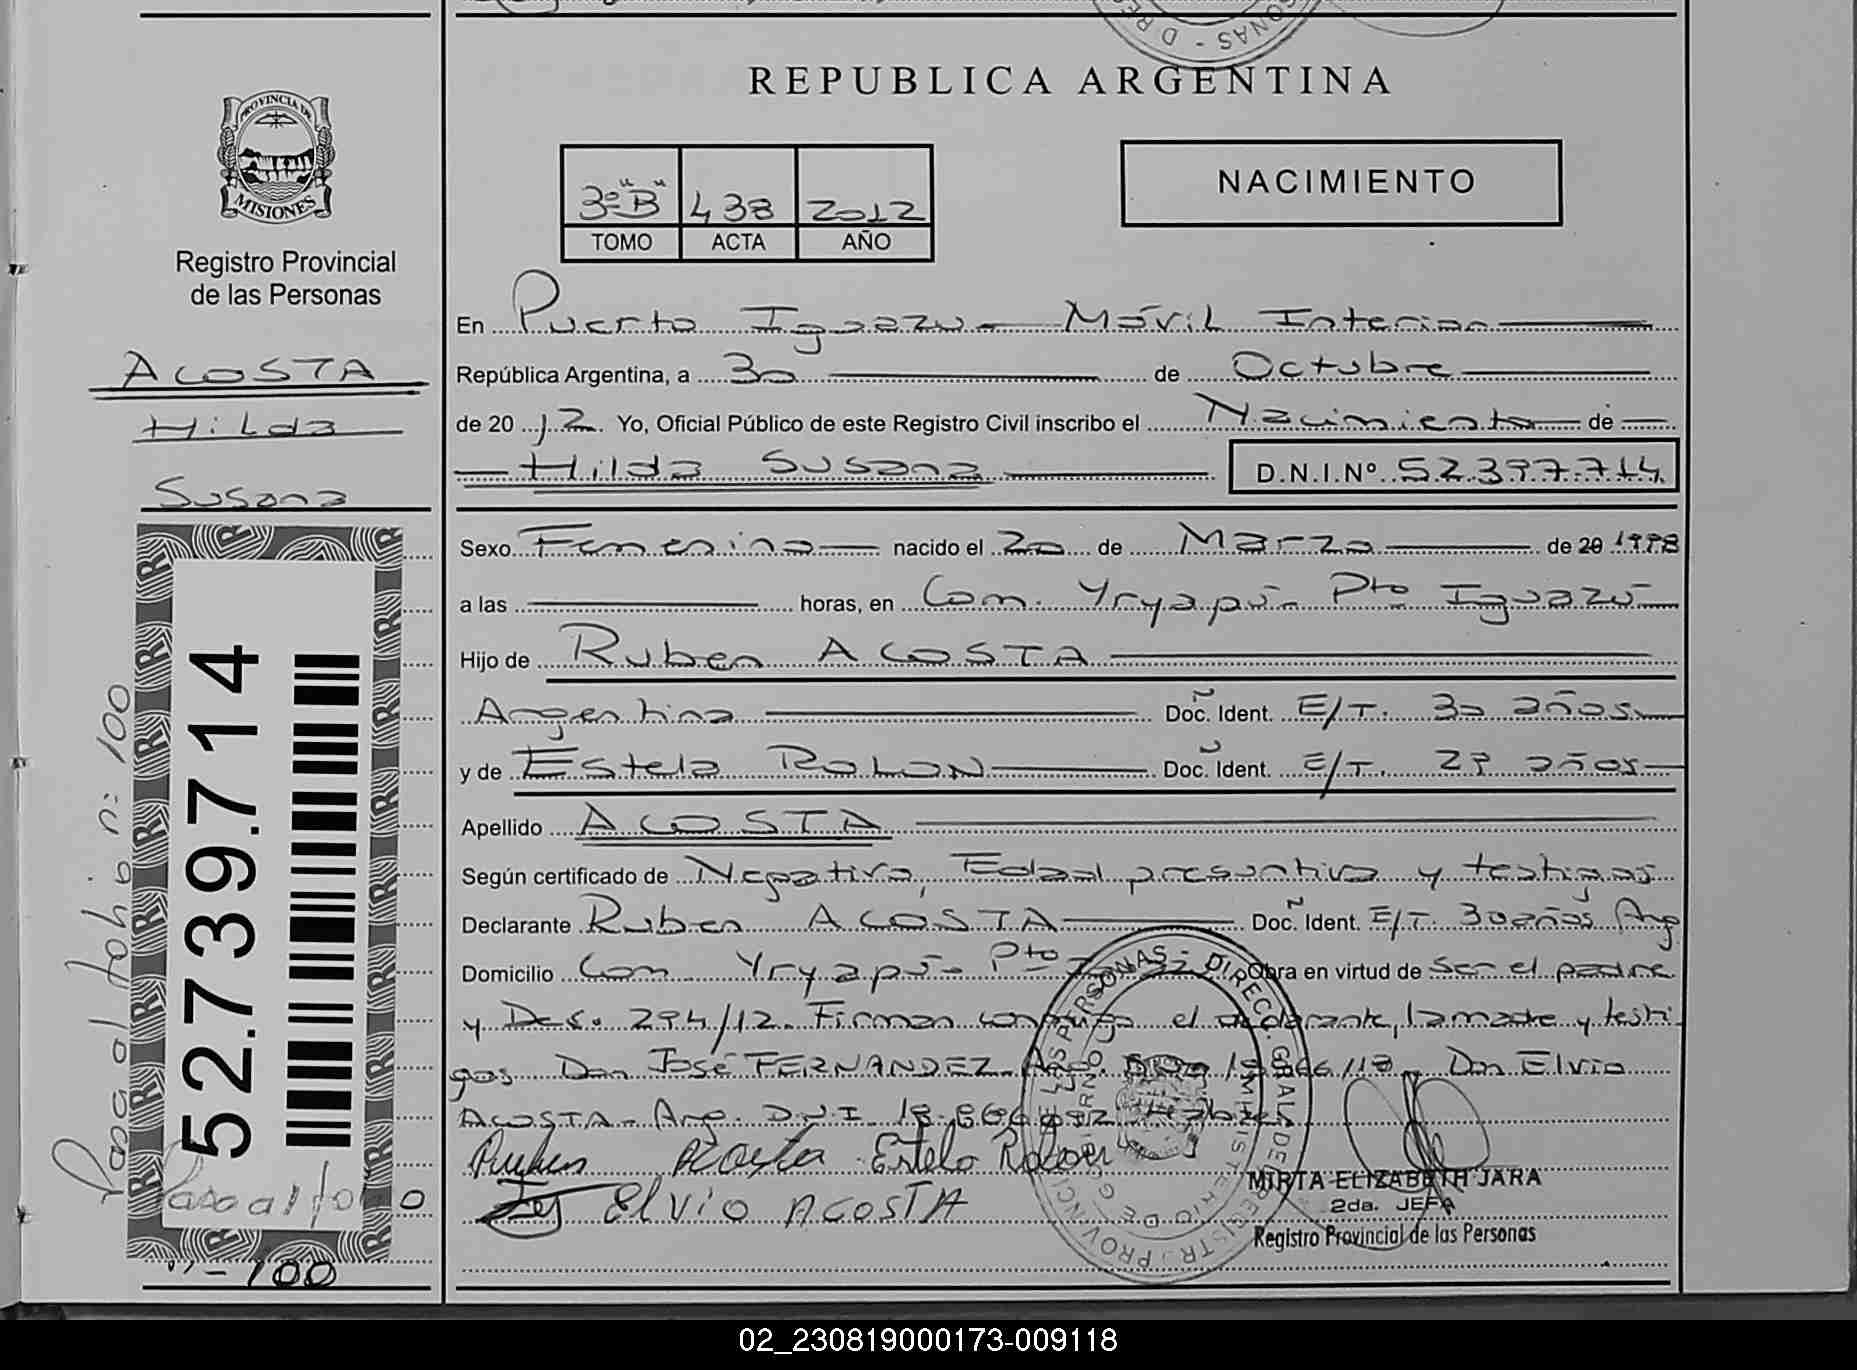 REPUBLICA ARGENTINA
PROVINCIA DE
MISIONES
Registro Provincial
de las Personas
ACOSTA
Hilda
Susana
52.739.714
Pasa al folio n: 100
Pasa al folio
n: 100
3º "B" 438 2012
TOMO ACTA AÑO
NACIMIENTO
En Puerto Iguazu - Móvil Interior
República Argentina, a 30 de Octubre
de 2012 Yo, Oficial Público de este Registro Civil inscribo el Nacimiento de
Hilda Susana D.N.I.Nº 52.397.714
Sexo Femenino nacido el 20 de Marzo de 20 1998
a las horas, en Com. Yryapú - Pto Iguazú
Hijo de Ruben ACOSTA
Argentina Doc. Ident. E/T. 30 años
y de Estela ROLON Doc. Ident. E/T. 29 años
Apellido ACOSTA
Según certificado de Negativa, Edad presuntiva y testigos
Declarante Ruben ACOSTA Doc. Ident. E/T. 30 años Arg
Domicilio Com Yryapú - Pto Obra en virtud de ser el padre
y Des. 294/12. Firman conmigo el declarante, la madre y testi
gos Don José FERNANDEZ - Arg. Don Elvio
ACOSTA - Arg. D.N.I 18.
Ruben Acosta Estela Rolon
Elvio ACOSTA
MIRTA ELIZABETH JARA
2da. JEFA
Registro Provincial de las Personas
02_230819000173-009118